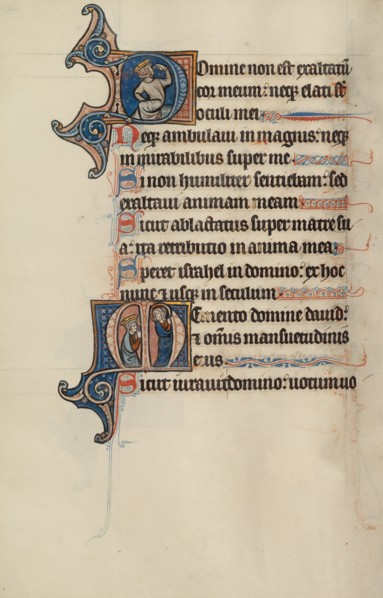 Domine non est exaltatū
cor meum: neqꝫ elati st̄
oculi mei
Neqꝫ ambulaui in magnis: neqꝫ
in mirabilibus super me
Si non humiliter sentiebam: sed
exaltaui animam meam
Sicut ablactatus super matre su
a: ita retributio in anima mea
Speret israhel in domino: ex hoc
nunc ⁊ usqꝫ in seculum
Memento domine dauid:
⁊ om̄is mansuetudinis
eius
Sicut iurauit domino: uotum uo